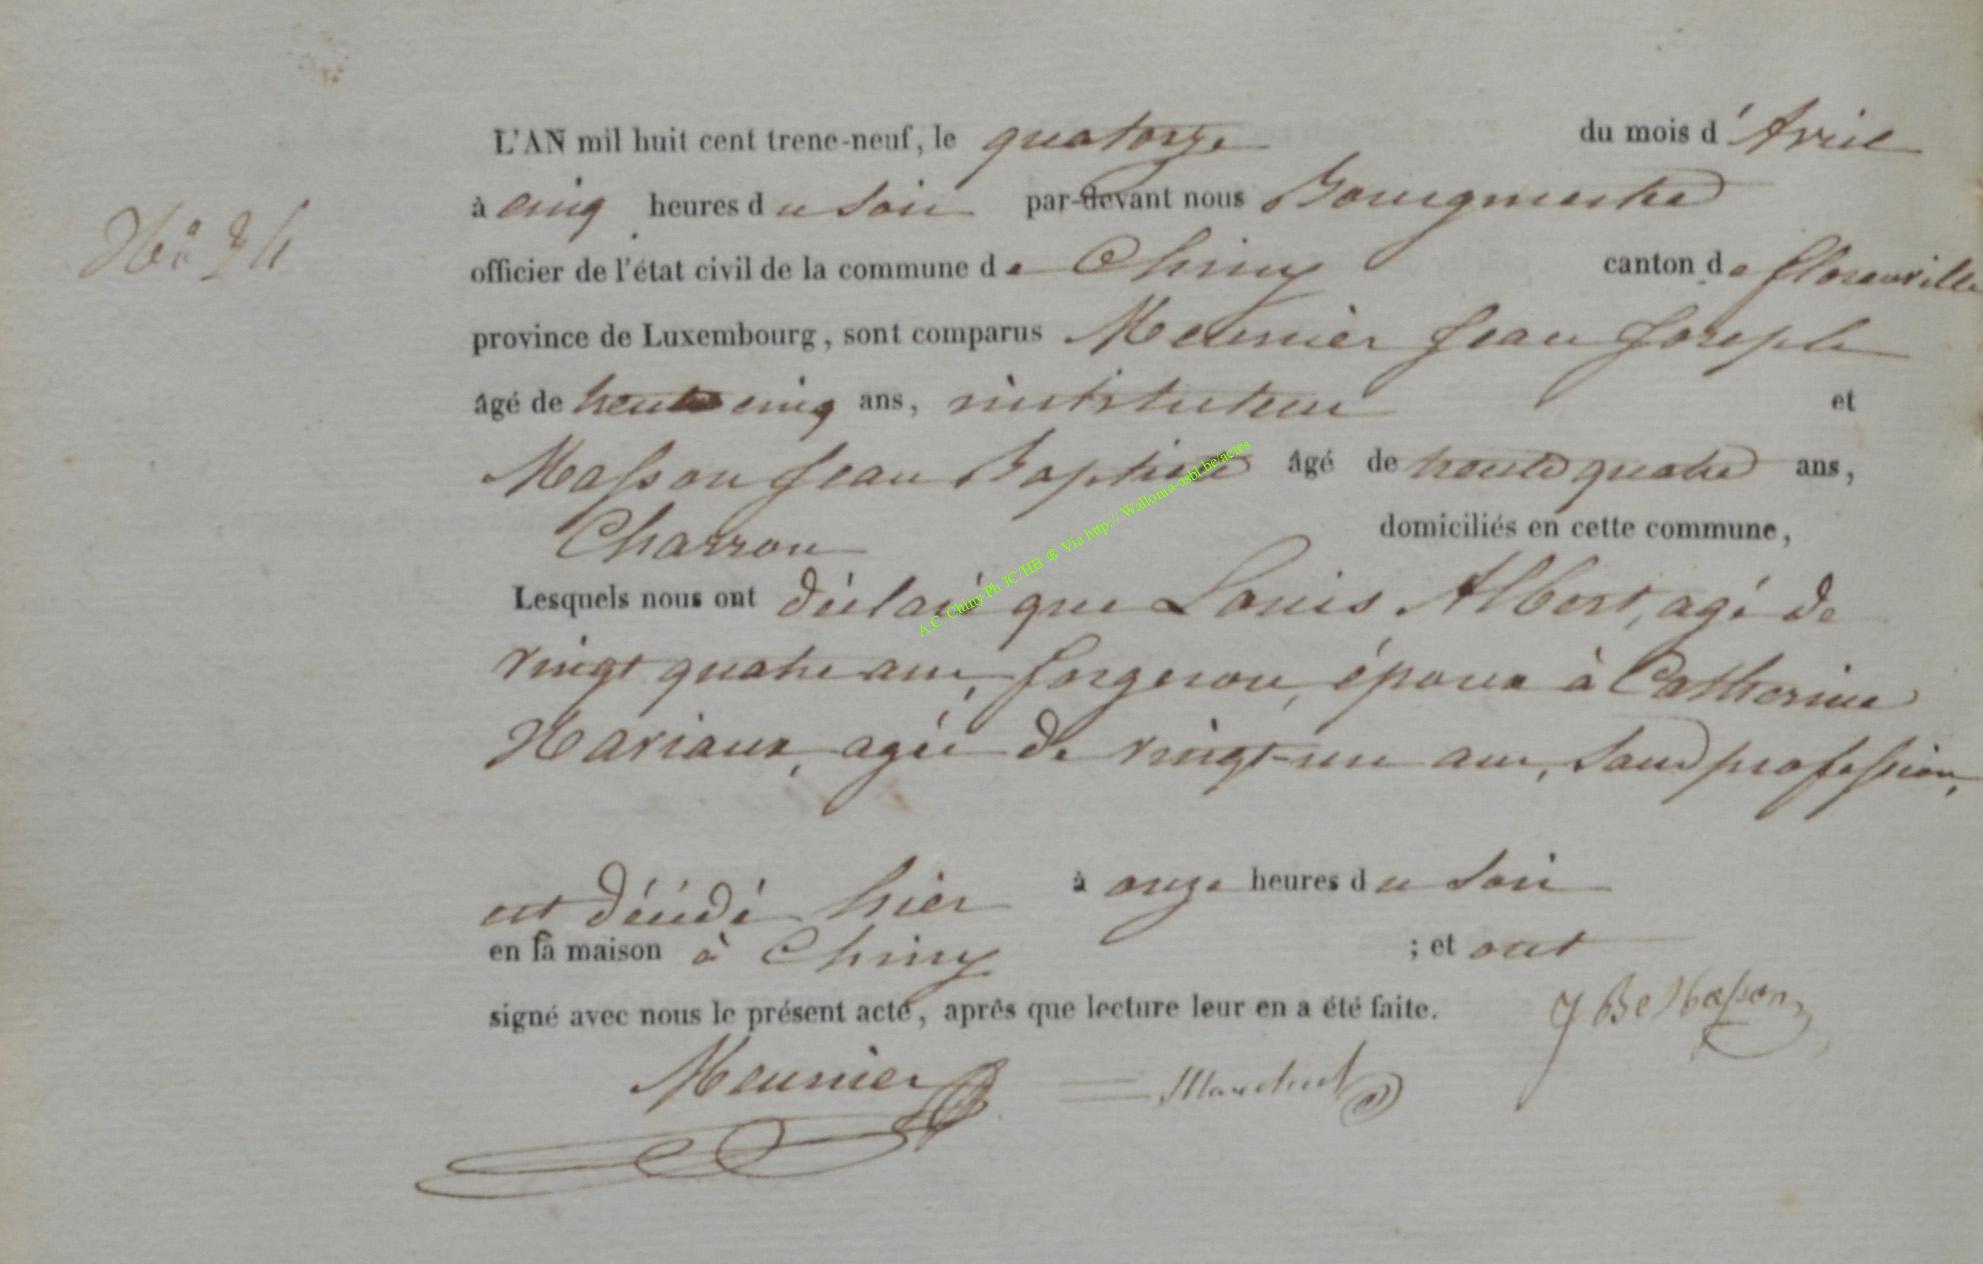 L'AN mil huit cent trene-neuf, le quatorze du mois d'Avril
à cinq heures du soir par-devant nous Bourgmestre
officier de l'état civil de la commune de Chiny canton de florenville
province de Luxembourg, sont comparus Meunier Jean Joseph
âgé de trente cinq ans, instituteur et
Masson Jean Baptiste âgé de trente quatre ans,
Charron domiciliés en cette commune,
Lesquels nous ont déclaré que Louis Albert, agé de
vingt quatre ans, forgeron, époux à Catherine
Hariaux, agée de vingt-un ans, sans profession,
est décédé hier à onze heures du soir
en sa maison à Chiny ; et ont
signé avec nous le présent acte, après que lecture leur en a été faite.
J Bte Masson
Meunier
A.C. Chiny Ph JC/HB @ Via http://Wallonia-asbl.be/actes